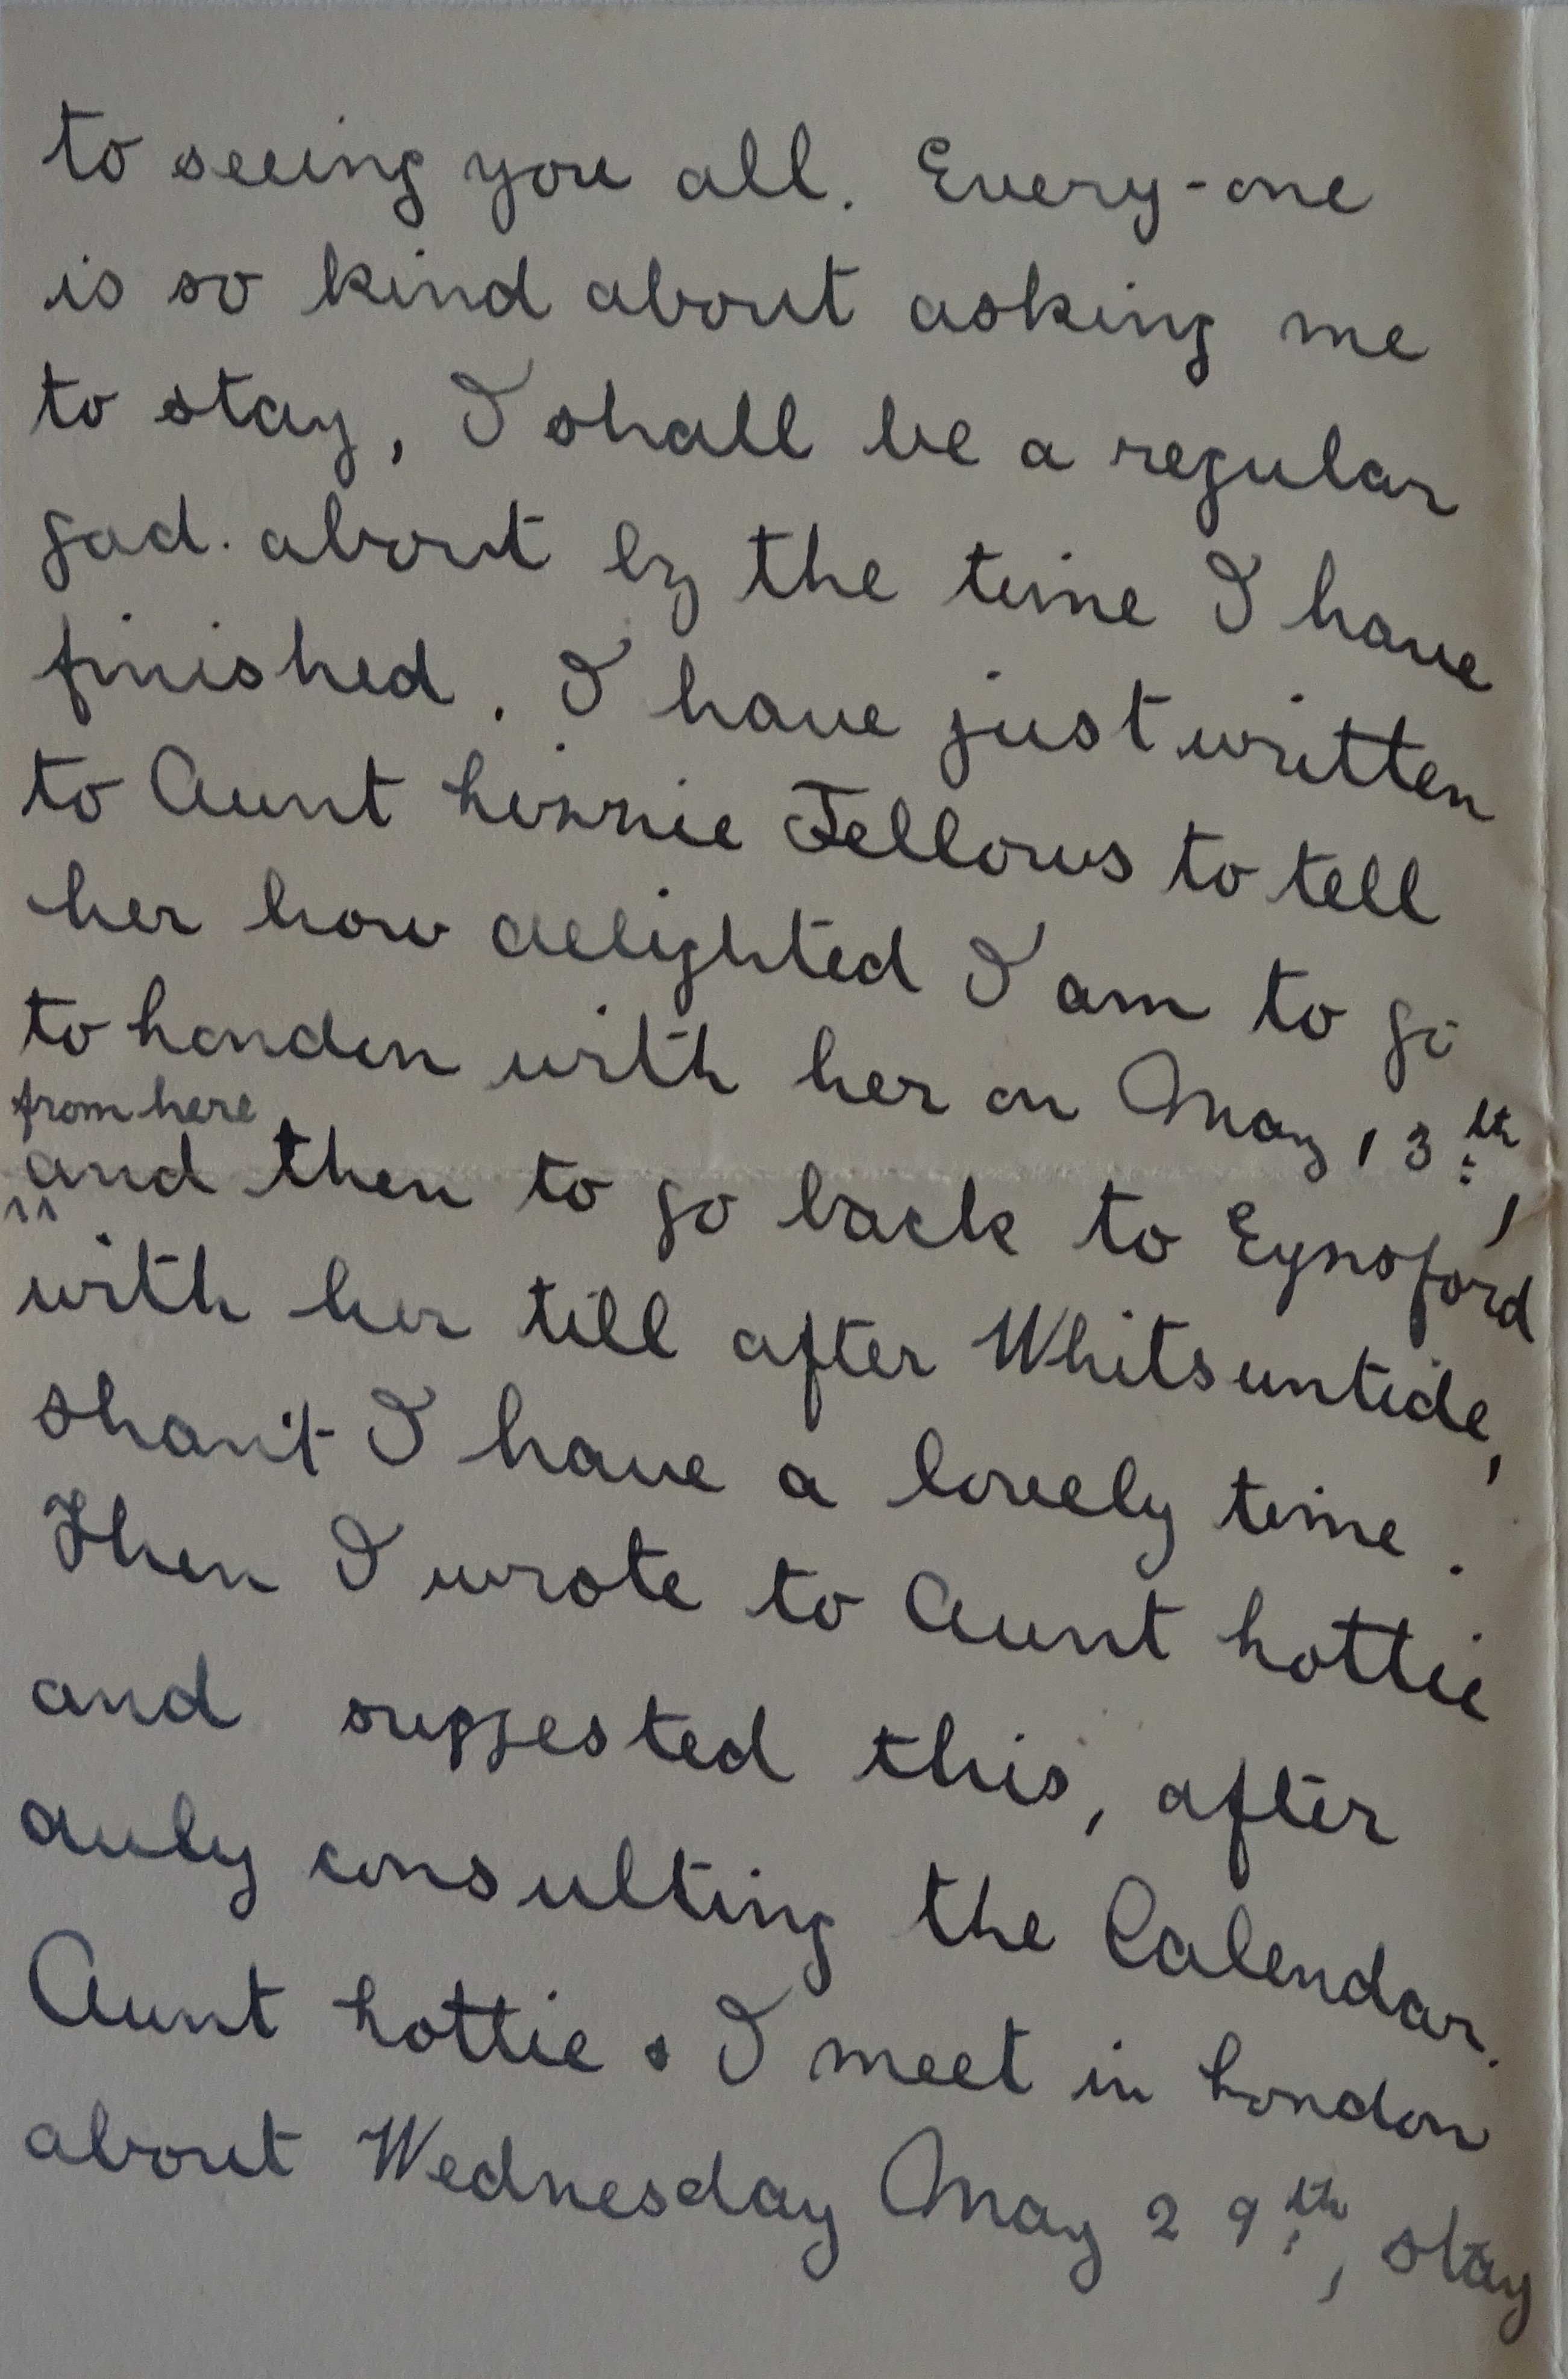 to seeing you all. Every-one
is so kind about asking me
to stay, I shall be a regular
gad-about by the time I have
finished. I have just written
to Aunt Linnie Fellows to tell
her how delighted I am to go
to London with her on May 13th,
from here
and then to go back to Eynsford
with her till after Whitsuntide,
shan't I have a lovely time.
Then I wrote to Aunt Lottie
and suggested this, after
duly consulting the Calendar.
Aunt Lottie & I meet in London
about Wednesday May 29th, stay